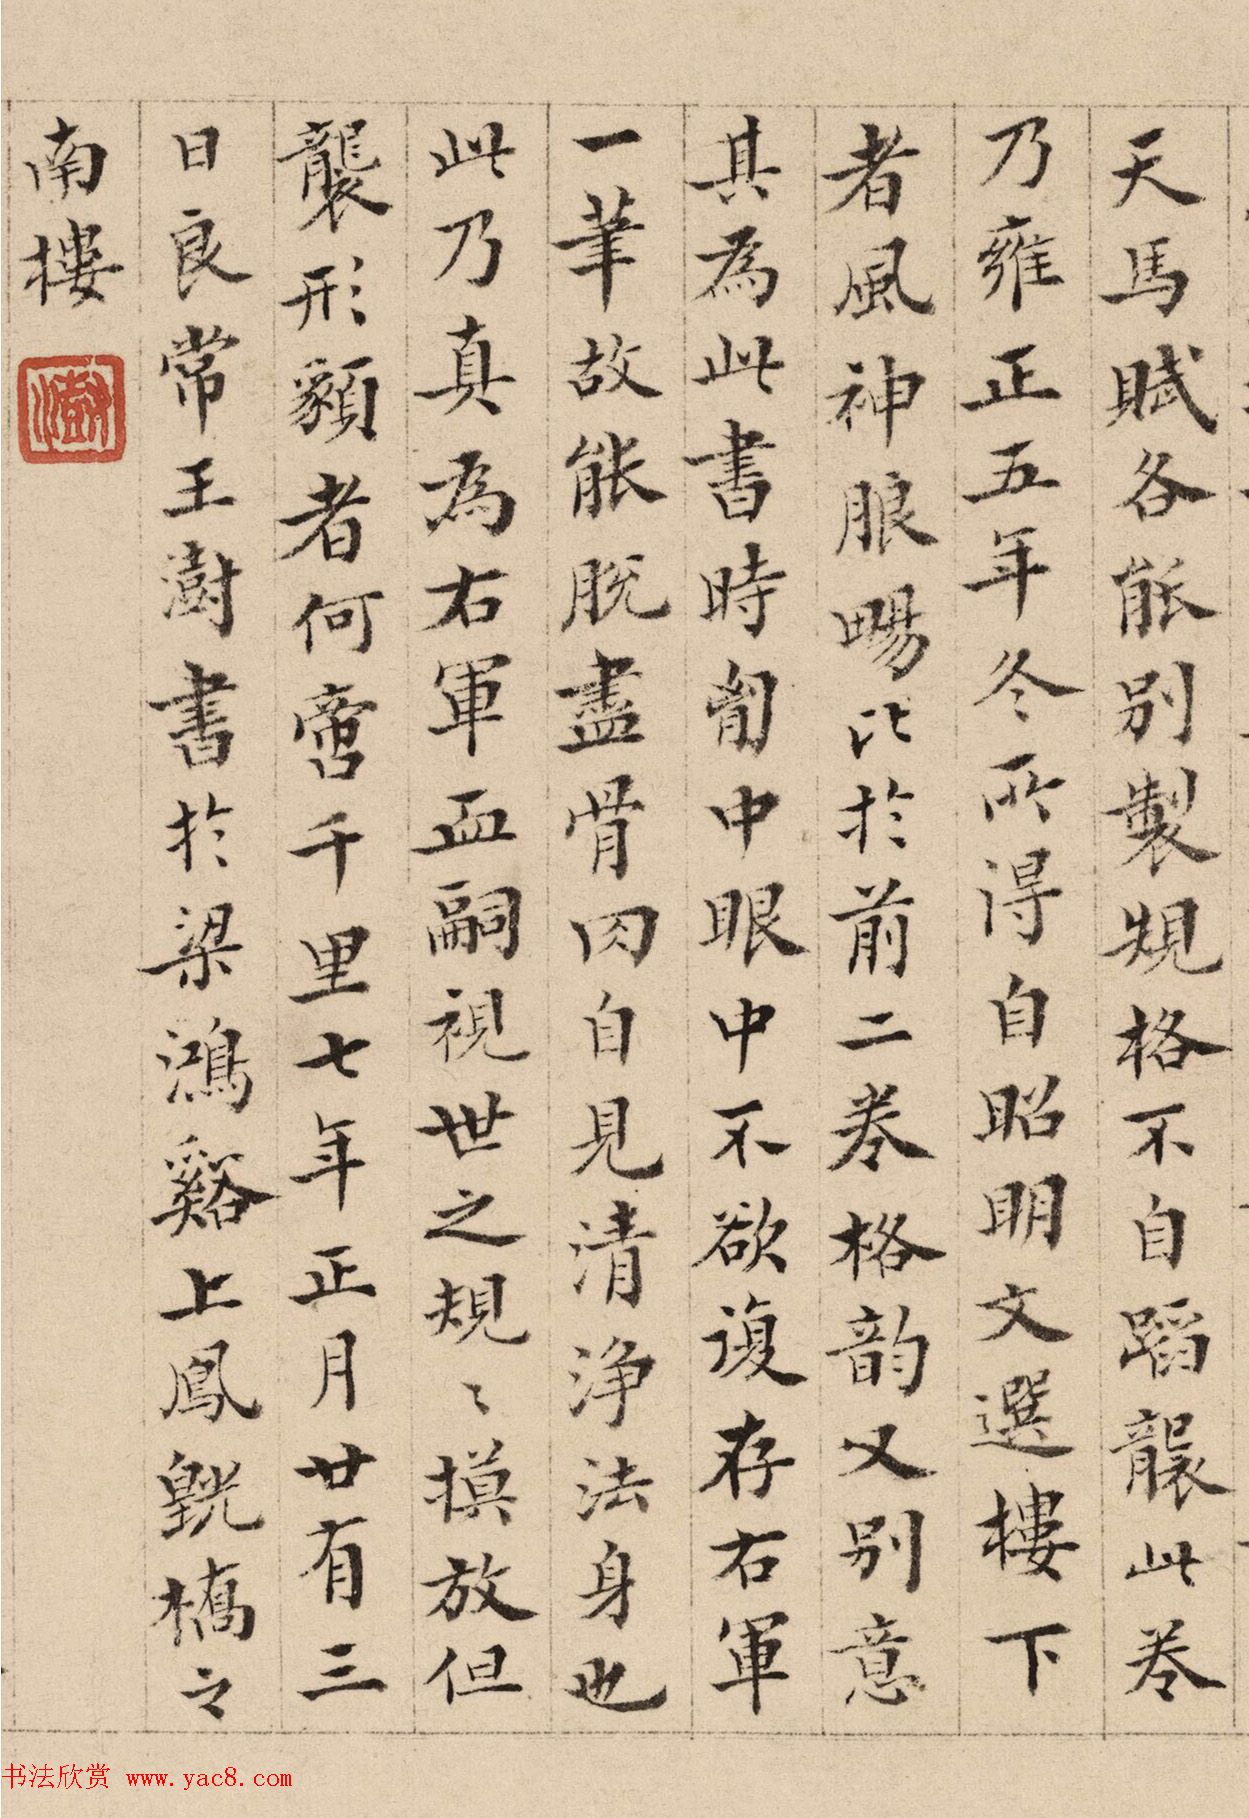 天馬賦各能別製規格不自蹈襲此卷
乃雍正五年冬所得自昭明文選樓下
者風神朖暢比於前二卷格韵又別意
其為此書時匈中眼中不欲復存右軍
一筆故能脫盡骨肉自見清淨法身也
此乃真為右軍血嗣視世之規〻摸放但
襲形貌者何啻千里七年正月廿有三
日良常王澍書於梁鴻谿上鳳皝橋之
南樓
澍
书法欣赏 www.yac8.com